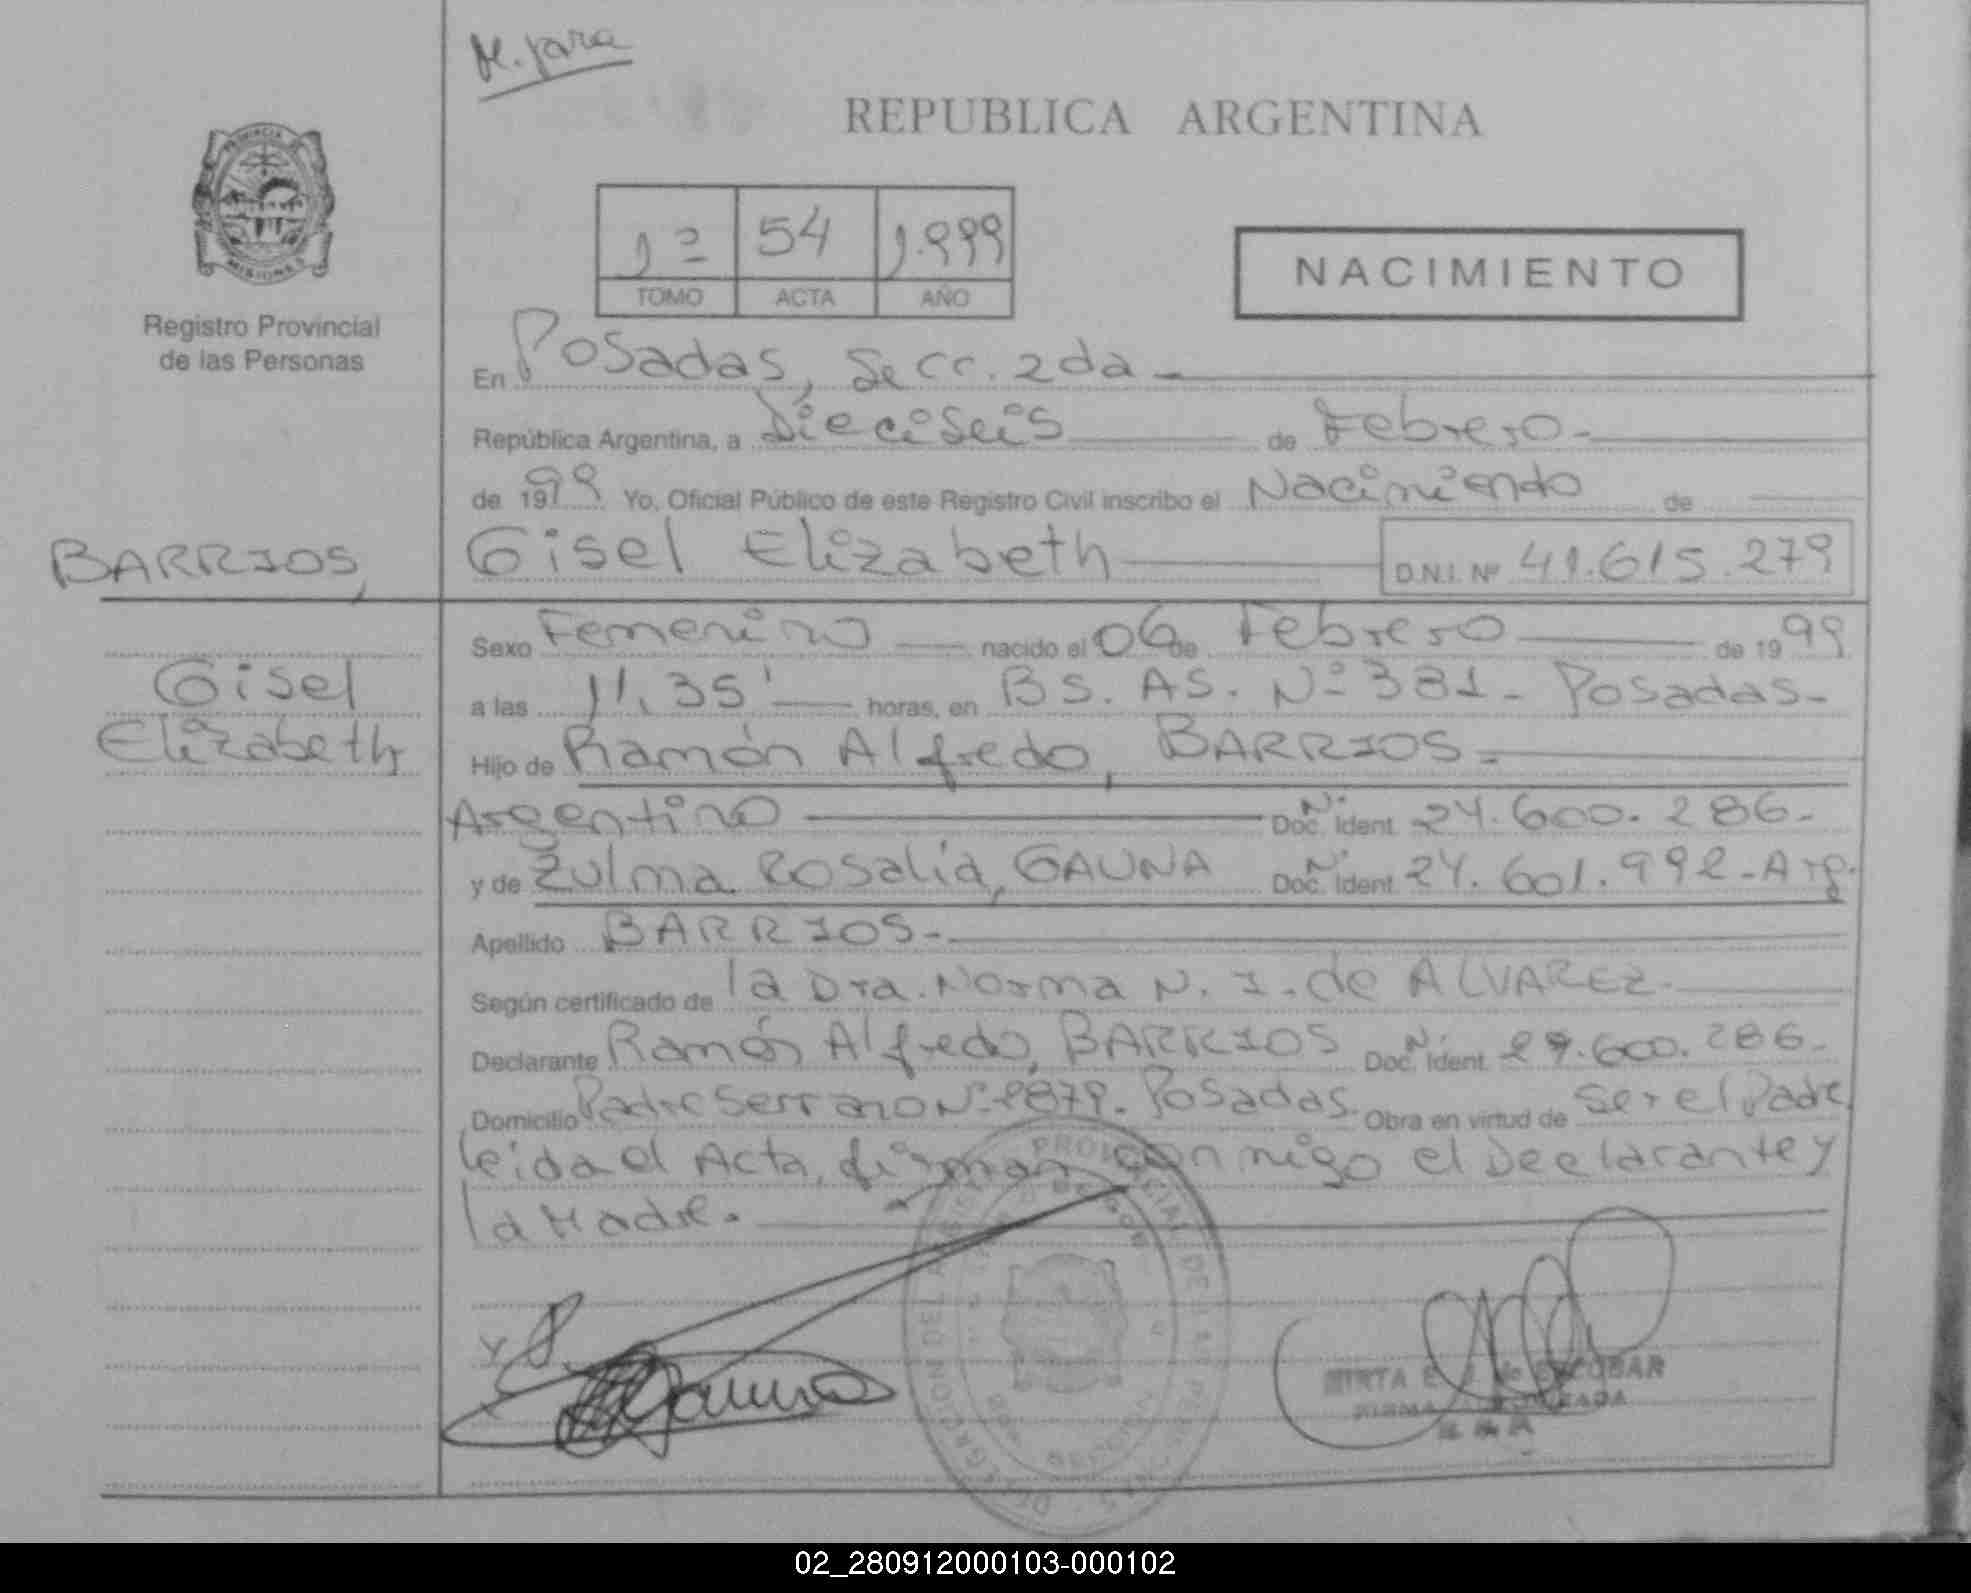 M. para
REPUBLICA ARGENTINA
PROVINCIA
MISIONES
Registro Provincial
de las Personas
1º 54 1.999
TOMO ACTA AÑO
NACIMIENTO
En Posadas, Secc. 2da -
República Argentina, a Dieciseis de Febrero -
de 1999 Yo, Oficial Público de este Registro Civil inscribo el Nacimiento de
BARRIOS, Gisel Elizabeth D.N.I. Nº 41.615.279
Gisel
Elizabeth
Sexo Femenino nacido el 06 de Febrero de 1999
a las 11,35' horas, en BS. AS. Nº 381 - Posadas -
Hijo de Ramón Alfredo, BARRIOS -
Argentino Nº Doc. Ident. 24.600.286 -
y de Zulma Rosalia, GAUNA Nº Doc. Ident. 24.601.992 - Arg.
Apellido BARRIOS -
Según certificado de la Dra. Norma N. I. de ALVAREZ.
Declarante Ramón Alfredo, BARRIOS Nº Doc. Ident. 24.600.286 -
Domicilio Padre Serrano Nº 2879. Posadas. Obra en virtud de Ser el Padre
leida el Acta, firman con migo el Declarante y
la Madre.
Gauna
MIRTA E. de ESCOBAR
FIRMA AUTORIZADA
02_280912000103-000102